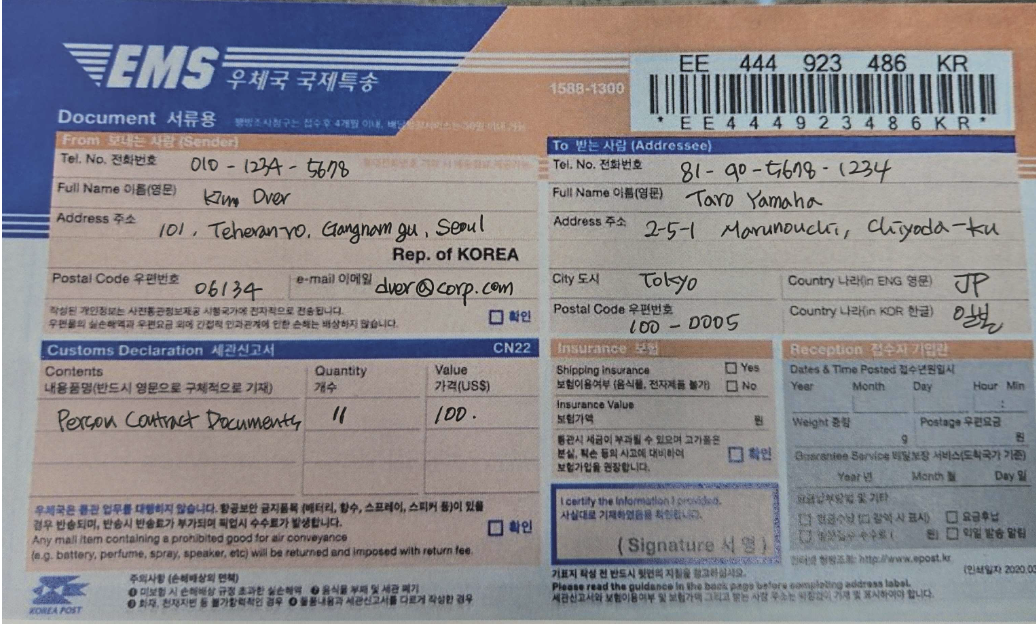 EMS 우체국 국제특송
1588-1300
EE 444 923 486 KR
* E E 4 4 4 9 2 3 4 8 6 K R *
Document 서류용
From 보내는 사람 (Sender)
Tel. No. 전화번호 010-1234-5678
Full Name 이름(영문) Kim Dver
Address 주소 101, Teheran-ro, Gangnam gu, Seoul
Rep. of KOREA
Postal Code 우편번호 06134
e-mail 이메일 dver@corp.com
작성된 개인정보는 사전통관정보제공 시행국가에 전자적으로 전송됩니다.
우편물의 실손해액과 우편요금 외에 간접적 인과관계에 인한 손해는 배상하지 않습니다.
확인
To 받는 사람 (Addressee)
Tel. No. 전화번호 81-90-5678-1234
Full Name 이름(영문) Taro Yamaha
Address 주소 2-5-1 Marunouchi, Chiyoda-ku
City 도시 Tokyo
Country 나라(in ENG 영문) JP
Postal Code 우편번호 100-0005
Country 나라(in KOR 한글) 일본
Customs Declaration 세관신고서 CN22
Contents
내용품명(반드시 영문으로 구체적으로 기재)
Quantity
개수
Value
가격(US$)
Person Contract Documents 11 100.
우체국은 통관 업무를 대행하지 않습니다. 항공보안 금지품목 (배터리, 향수, 스프레이, 스피커 등)이 있을
경우 반송되며, 반송시 반송료가 부가되며 픽업시 수수료가 발생합니다.
Any mail item containing a prohibited good for air conveyance
(e.g. battery, perfume, spray, speaker, etc) will be returned and imposed with return fee.
확인
Insurance 보험
Shipping Insurance
보험이용여부 (음식물, 전자제품 불가)
Yes
No
Insurance Value
보험가액 원
통관시 세금이 부과될 수 있으며 고가품은
분실, 훼손 등의 사고에 대비하여
보험가입을 권장합니다.
확인
I certify the information I provided.
사실대로 기재하였음을 확인합니다.
(Signature 서명)
Reception 접수자 기입란
Dates & Time Posted 접수년월일시
Year Month Day Hour Min
:
Weight 중량 g
Postage 우편요금 원
Guarantee Service 배달보장 서비스(도착국가 기준)
Year 년 Month 월 Day 일
요금납부방법 및 기타
요금후납
익일 발송 알림
http://www.epost.kr
KOREA POST
주의사항 (손해배상의 면책)
❶ 미보험 시 손해배상 규정 초과한 실손해액 ❷ 음식물 부패 및 세관 폐기
❸ 화재, 천재지변 등 불가항력적인 경우 ❹ 물품내용과 세관신고서를 다르게 작성한 경우
기표지 작성 전 반드시 뒷면의 지침을 참고하십시오.
(인쇄일자 2020.03
Please read the guidance in the back page before completing address label.